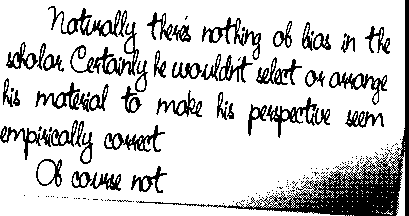 Naturally there's nothing of bias in the
scholar. Certainly he wouldn't select or arrange
his material to make his perspective seem
empirically correct
Of course not